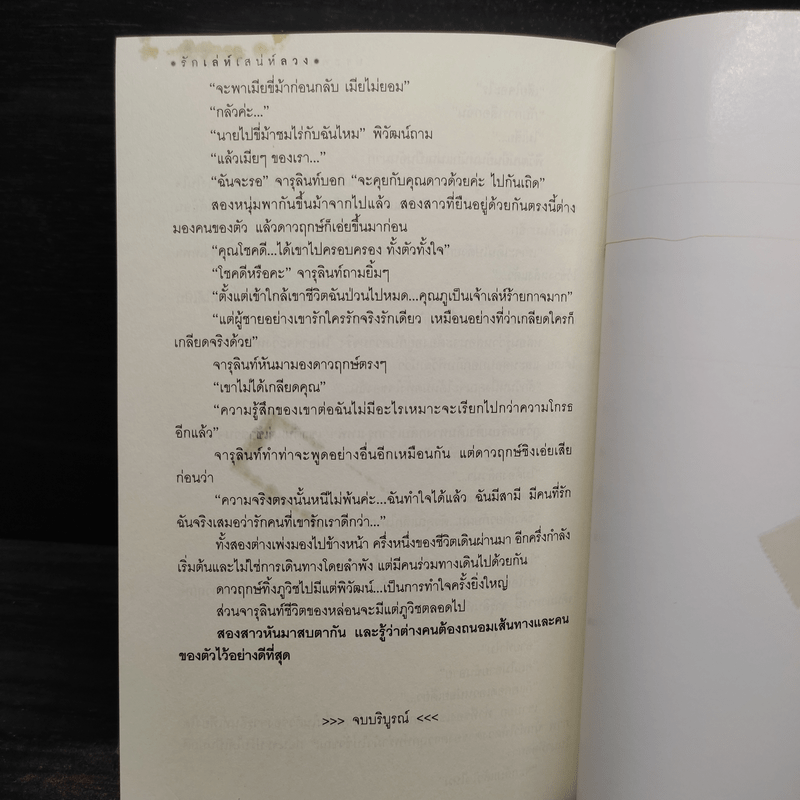 ● รักเล่ห์เสน่ห์ลวง ●
“จะพาเมียขี่ม้าก่อนกลับ เมียไม่ยอม”
“กลัวค่ะ...”
“นายไปขี่ม้าชมไร่กับฉันไหม” พิวัฒน์ถาม
“แล้วเมียๆ ของเรา...”
“ฉันจะรอ” จารุลินท์บอก “จะคุยกับคุณดาวด้วยค่ะ ไปกันเถิด”
สองหนุ่มพากันขึ้นม้าจากไปแล้ว สองสาวที่ยืนอยู่ด้วยกันตรงนี้ต่าง
มองคนของตัว แล้วดาวฤกษ์ก็เอ่ยขึ้นมาก่อน
“คุณโชคดี...ได้เขาไปครอบครอง ทั้งตัวทั้งใจ”
“โชคดีหรือคะ” จารุลินท์ถามยิ้มๆ
“ตั้งแต่เข้าใกล้เขาชีวิตฉันป่วนไปหมด...คุณภูเป็นเจ้าเล่ห์ร้ายกาจมาก”
“แต่ผู้ชายอย่างเขารักใครรักจริงรักเดียว เหมือนอย่างที่ว่าเกลียดใครก็
เกลียดจริงด้วย”
จารุลินท์หันมามองดาวฤกษ์ตรงๆ
“เขาไม่ได้เกลียดคุณ”
“ความรู้สึกของเขาต่อฉันไม่มีอะไรเหมาะจะเรียกไปกว่าความโกรธ
อีกแล้ว”
จารุลินท์ทำท่าจะพูดอย่างอื่นอีกเหมือนกัน แต่ดาวฤกษ์ชิงเอ่ยเสีย
ก่อนว่า
“ความจริงตรงนั้นหนีไม่พ้นค่ะ...ฉันทำใจได้แล้ว ฉันมีสามี มีคนที่รัก
ฉันจริงเสมอว่ารักคนที่เขารักเราดีกว่า...”
ทั้งสองต่างเพ่งมองไปข้างหน้า ครึ่งหนึ่งของชีวิตเดินผ่านมา อีกครึ่งกำลัง
เริ่มต้นและไม่ใช่การเดินทางโดยลำพัง แต่มีคนร่วมทางเดินไปด้วยกัน
ดาวฤกษ์ทิ้งภูวิชไปมีแต่พิวัฒน์...เป็นการทำใจครั้งยิ่งใหญ่
ส่วนจารุลินท์ชีวิตของหล่อนจะมีแต่ภูวิชตลอดไป
สองสาวหันมาสบตากัน และรู้ว่าต่างคนต้องถนอมเส้นทางและคน
ของตัวไว้อย่างดีที่สุด
>>> จบบริบูรณ์ <<<